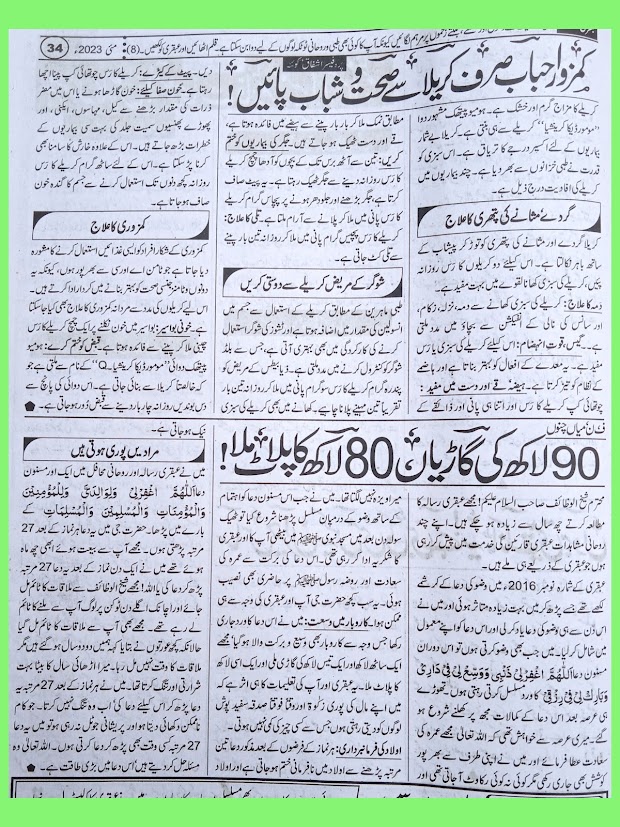 مئی 2023ء (8)
34
کمزور احباب صرف کریلا سے صحت و شباب پائیں!
کریلے کا مزاج گرم اور خشک ہے۔ ہومیو پیتھک مشہور دوا
بیماریوں کے لئے اکسیر درجے کا تریاق ہے۔ اس سبزی کو
قدرت نے طبی خزانوں سے بھر دیا ہے۔ چند بیماریوں میں
کریلے کی افادیت درج ذیل ہے۔
گردے مثانے کی پتھری کا علاج
کریلا گردے اور مثانے کی پتھری کو توڑ کر پیشاب کے
ساتھ باہر نکالتا ہے۔ اس کیلئے دو کریلوں کا رس روزانہ
پینے، کریلے کی سبزی کھانا لقوے میں بہت مفید ہے۔
دمہ کا علاج: کریلے کی سبزی کھانے سے دمہ، نزلہ، زکام،
اور سانس کی نالی کے انفیکشن سے بچاؤ میں مدد ملتی
ہے۔ گیس، قوت انہضام: اس کیلئے کریلے کی سبزی یا رس
مفید ہے۔ یہ معدے کے افعال کو بہتر بناتا ہے اور ہاضمے
کے نظام کو تیز کرتا ہے۔ ہیضہ قے اور دست میں مفید:
چوتھائی کپ کریلے کا رس اور اتنا ہی پانی اور ذائقے کے
مطابق نمک ملا کر بار بار پینے سے ہیضے میں فائدہ ہوتا ہے،
قے اور دست ٹھیک ہو جاتے ہیں۔ جگر کی بیماریوں کو ختم
کریں: تین سے آٹھ برس تک کے بچوں کو آدھا چمچ کریلے
کا رس روزانہ دینے سے جگر ٹھیک رہتا ہے۔ یہ پیٹ صاف
کرتا ہے، جگر بڑھنے اور جلودھر ہونے پر پچاس گرام کریلے
کا رس پانی میں ملا کر پلانے سے آرام ملتا ہے۔ تلی کا علاج:
کریلے کا رس پچیس گرام پانی میں ملا کر روزانہ تین بار پینے
سے تلی کٹ جاتی ہے۔
شوگر کے مریض کریلے سے دوستی کریں
طبی ماہرین کے مطابق کریلے کے استعمال سے جسم میں
انسولین کی مقدار میں اضافہ ہوتا ہے اور ٹشوز کی شوگر استعمال
کرنے کی کارکردگی میں بھی بہتری آتی ہے، جس سے بلڈ
شوگر کو کنٹرول کرنے میں مدد ملتی ہے۔ ذیابیطس کے مریض کو
پندرہ گرام کریلے کا رس سو گرام پانی میں ملا کر روزانہ تین بار
تقریباً تین مہینے پلانا چاہیے۔ کھانے میں بھی کریلے کی سبزی
دیں۔ پیٹ کے کیڑے: کریلے کا رس چوتھائی کپ پینا اچھا
رہتا ہے۔ خون صفا کیلئے: خون کا گاڑھا ہونے یا اس میں مضر
ذرات کی مقدار بڑھنے سے کیل، مہاسوں، ایکنی، اور
پھوڑے پھنسیوں سمیت جلد کی بہت سی بیماریوں کے
خطرات بڑھ جاتے ہیں۔ اس کے علاوہ خارش کا سامنا بھی
کرنا پڑ سکتا ہے۔ اس کے لئے ساٹھ گرام کریلے کا رس
روزانہ کچھ دنوں تک استعمال کرنے سے جسم کا گندہ خون
صاف ہو جاتا ہے۔
کمزوری کا علاج
کمزوری کے شکار افراد کو ایسی غذائیں استعمال کرنے کا مشورہ
دیا جاتا ہے جو وٹامن اے اور سی سے بھرپور ہوں، کیونکہ یہ
دونوں وٹامنز جنسی صحت کو بہتر بنانے میں کردار ادا کرتے ہیں۔
اس لئے کریلوں کی مدد سے مردانہ کمزوری کا علاج بھی کیا جا سکتا
ہے۔ خونی بواسیر: بواسیر میں خون نکلنے پر ایک چمچ کریلے کا رس
چینی ملا کر پینے سے فائدہ ہوتا ہے۔ قبض کو ختم کرے: ہومیو
پیتھک دوائی "مومورڈیکا کریلشیا۔ Q" کے نام سے ملتی ہے جو
کہ خالصتاً کریلا سے بنائی جاتی ہے۔ اس دوائی کی پانچ سے
دس بوندیں روزانہ چار بار دینے سے قبض دور ہو جاتی ہے۔
90 لاکھ کی گاڑیاں 80 لاکھ کا پلاٹ ملا!
محترم شیخ الوظائف صاحب السلام علیکم! مجھے عبقری رسالہ کا
مطالعہ کرتے چھ سال سے زیادہ ہو چکے ہیں۔ اپنے چند
روحانی مشاہدات عبقری قارئین کی خدمت میں پیش کر رہی
ہوں جو عبقری کے ذریعے ہی ملے ہیں۔
عبقری کے شمارہ نومبر 2016ء میں وضو کی دعا کے کرشمے
لکھے تھے جسے پڑھ کر میں بہت زیادہ متاثر ہوئی اور میں نے
اس دن سے ہی وضو کی دعا یاد کر لی اور اس دعا کو اپنے معمول
میں شامل کر لیا۔ میں جب بھی وضو کرتی ہوں تو اس دوران
مسنون دعا اَللّٰهُمَّ اغْفِرْلِیْ ذَنْۢبِیْ وَوَسِّعْ لِیْ فِیْ دَارِیْ
وَبَارِكْ لِیْ فِیْ رِزْقِیْ کا ورد مسلسل کرتی رہتی ہوں۔ تھوڑے
ہی عرصہ بعد اس دعا کے کمالات مجھ پر کھلنے شروع ہو
گئے۔ میری عرصہ سے خواہش تھی کہ اللہ تعالیٰ مجھے عمرہ کی
سعادت عطا فرمائے اور میں نے اپنی طرف سے بھر پور
کوشش بھی جاری رکھی مگر کوئی نہ کوئی رکاوٹ آ جاتی تھی اور
میرا ویزہ نہیں لگتا تھا۔ میں نے جب اس مسنون دعا کو اہتمام
کے ساتھ وضو کے درمیان مسلسل پڑھنا شروع کیا تو ٹھیک
سولہ دن بعد میں مسجد نبوی ﷺ میں بیٹھی آپ کا اور عبقری
کا شکریہ ادا کر رہی تھی۔ اس دعا کی برکت سے عمرہ کی
سعادت اور روضہ رسول ﷺ پر حاضری بھی نصیب
ہوئی۔ یہ سب کچھ حضرت جی آپ اور عبقری کی وجہ سے ہی
ممکن ہوا۔ کاروبار میں وسعت: میں نے اس دعا کا ورد جاری
رکھا جس کی وجہ سے کاروبار بھی وسیع و برکت والا ہو گیا، مجھے
ایک ساتھ لاکھ اور ایک تیس لاکھ کی گاڑی ملی اور ایک اسی لاکھ
کا پلاٹ ملا۔ یہ عبقری اور آپ کی تعلیمات کا ہی اثر ہے کہ
میں اپنے مال کی پوری زکوٰۃ اور وقتاً فوقتاً صدقہ سفید پوش
لوگوں کو دیتی رہتی ہوں جس سے کسی چیز کی کمی نہیں ہوتی۔
اولاد کی فرمانبرداری: ہر نماز کے فرضوں کے بعد مذکورہ دعا تین
مرتبہ پڑھنے سے اولاد میں نافرمانی ختم ہو جاتی ہے اور اولاد
نیک ہو جاتی ہے۔
مرادیں پوری ہوتی ہیں
میں نے عبقری رسالہ اور روحانی محافل میں ایک اور مسنون
دعا اَللّٰهُمَّ اغْفِرْلِیْ وَلِوَالِدَیَّ وَلِلْمُؤْمِنِیْنَ
وَالْمُؤْمِنَاتِ وَالْمُسْلِمِیْنَ وَالْمُسْلِمَاتِ کے
بارے میں پڑھا۔ حضرت جی میں یہ دعا ہر نماز کے بعد 27
مرتبہ پڑھتی ہوں۔ مجھے آپ سے بیعت ہوئے ابھی چھ ماہ
ہوئے تھے میں نے ایک دن نماز کے بعد یہ دعا 27 مرتبہ
پڑھ کر دعا کی یا اللہ! مجھے شیخ الوظائف سے ملاقات کا ٹائم مل
جائے اور اچانک اگلے دن ٹوکن پر لوگ آپ سے ملنے کا ٹائم
لے رہے تھے۔ مجھے بھی آپ سے ملاقات کا ٹائم مل گیا
حالانکہ کچھ عورتوں نے بتایا کہ ہمیں دو دو سال ہو گئے ہیں مگر
ملاقات کا وقت نہیں مل رہا۔ میرا اڑھائی سال کا بیٹا بہت
شرارتی اور تنگ کرتا تھا۔ میں نے ہر نماز کے بعد 27 مرتبہ یہ
دعا پڑھ کر اس کیلئے دعا کی اب وہ تنگ نہیں کرتا۔ جو کام
ناممکن دکھائی دیتا ہو اور پریشانی جو ٹل نہ رہی ہو تو میں یہ دعا
27 مرتبہ کسی وقت بھی پڑھ کر دعا کرتی ہوں۔ اللہ تعالیٰ وہ
مسئلہ حل کر دیتے ہیں اس دعا میں بڑی طاقت ہے۔